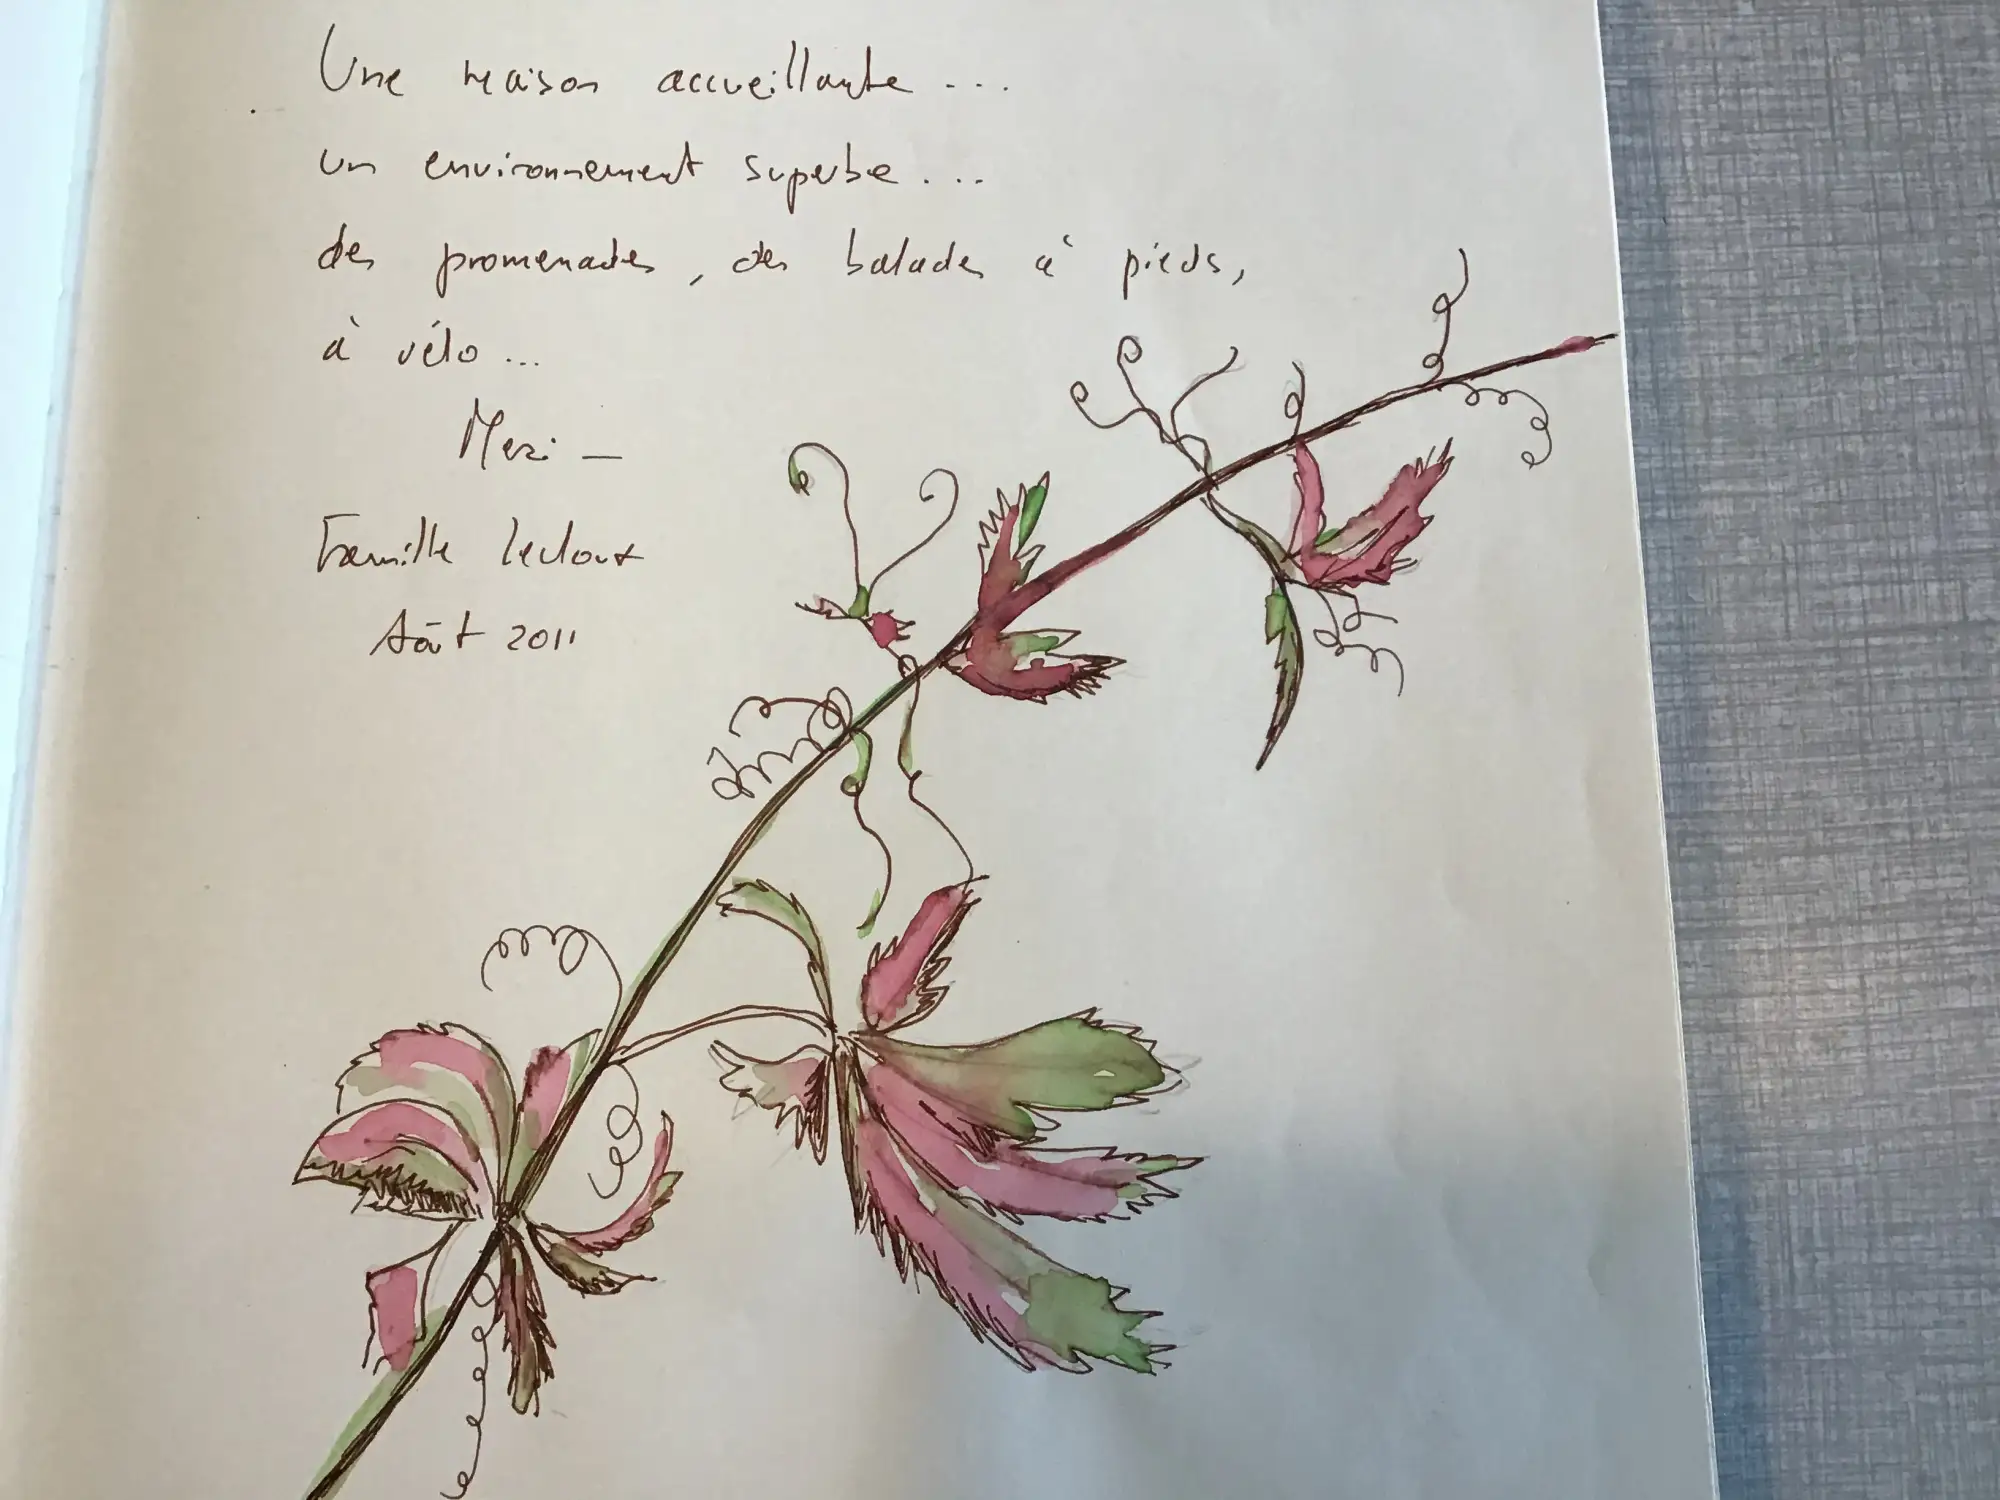 Une maison accueillante ...
un environnement superbe ...
des promenades, des balades à pieds,
à vélo ...
Merci —
Famille Leclout
Août 2011